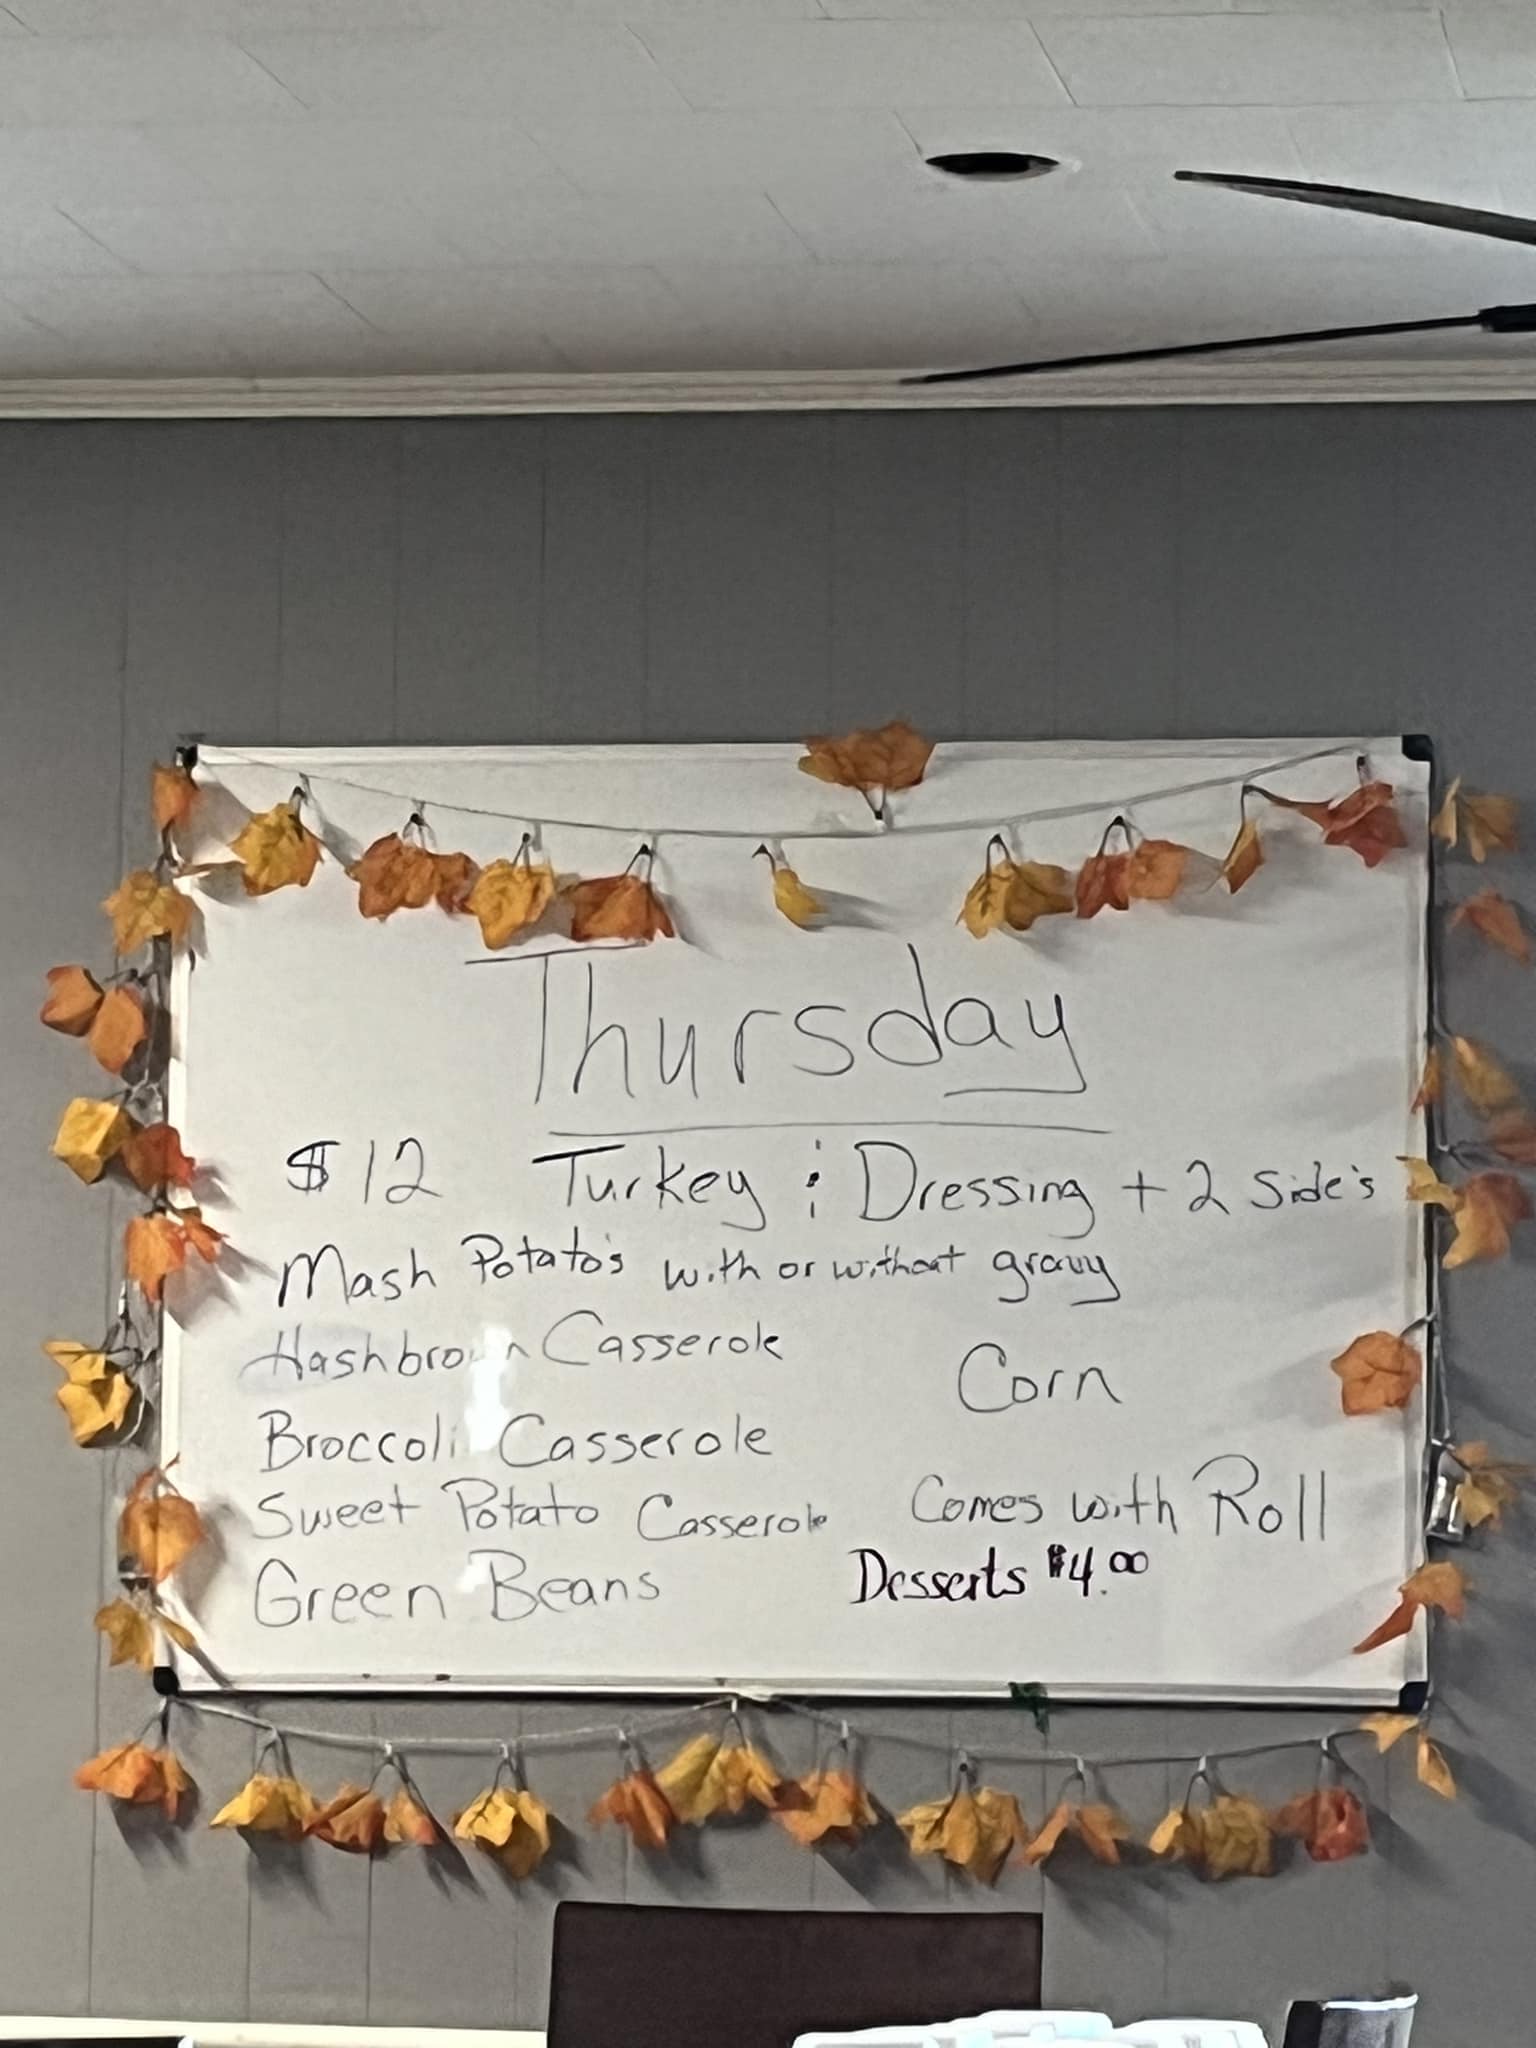 Thursday
$12 Turkey & Dressing + 2 Side's
Mash Potato's with or without gravy
Hashbrown Casserole
Corn
Broccoli Casserole
Sweet Potato Casserole
Comes with Roll
Green Beans
Desserts $4.00